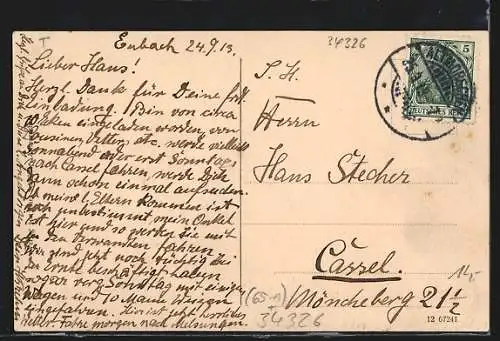 Eubach 24.9.13.
Lieber Hans!
Herzl. Dank für Deine frdl.
Einladung! Bin von circa
10 Jahren eingeladen worden, von
Cousinen, Vettern etc. werde vielleicht
Sonnabend oder erst Sonntag
nach Cassel fahren, werde Dich
dann schon einmal aufsuchen.
Ob meine l. Eltern kommen ist
noch unbestimmt, mein Onkel
ist hier und so werden Sie mit
zu den Verwandten fahren.
Wir sind jetzt noch tüchtig bei
der Ernte beschäftigt haben
sogar vorg. Sonntag mit einigen
Wagen und 10 Mann Weizen
eingefahren. Hier ist jetzt herrliches
Wetter. Fahre morgen nach Melsungen.
34326
S. H.
Herrn
Hans Stecher
Cassel.
Möncheberg 21 1/2
14,-
(65-1)
34326
12 67241
5
DEUTSCHES REICH